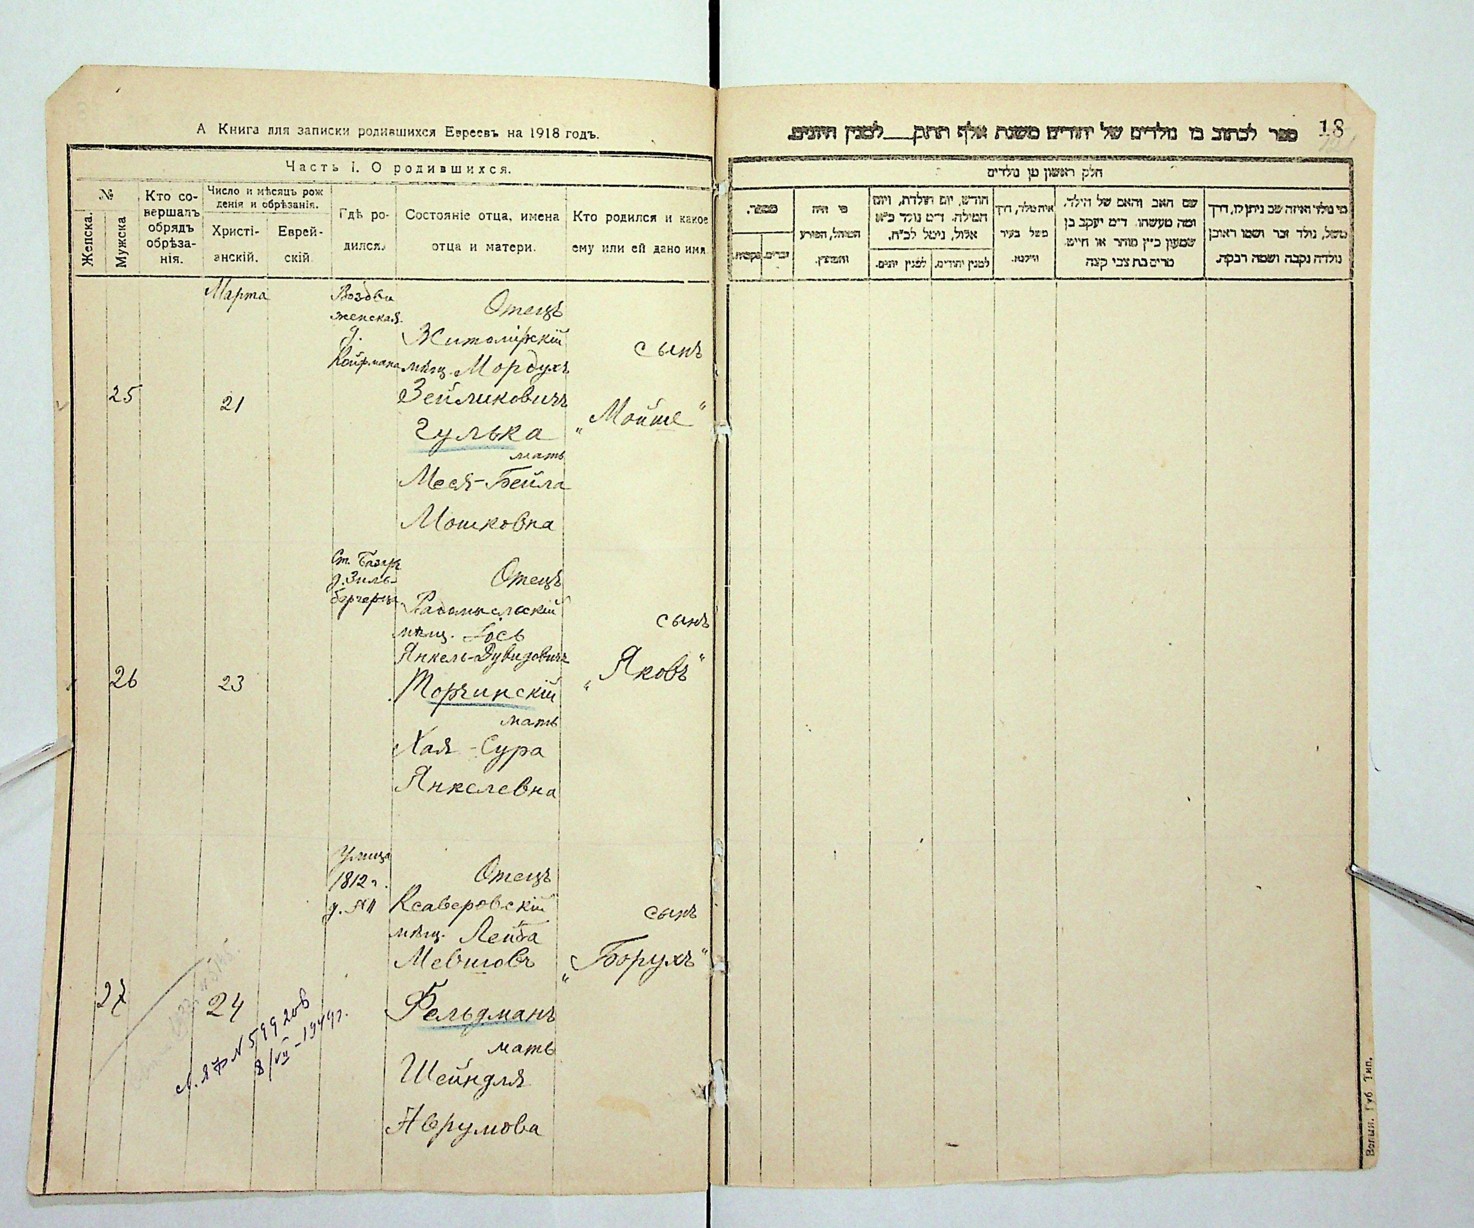 А Книга для записки родившихся Евреевъ на 1918 годъ.
Часть I. О родившихся.
№
Женска.
Мужска
Кто со-
вершалъ
обрядъ
обрѣза-
нія.
Число и мѣсяцъ рож
денія и обрѣзанія.
Христі-
анскій.
Еврей-
скій
Гдѣ ро-
дился.
Состояніе отца, имена
отца и матери.
Кто родился и какое
ему или ей дано имя.
Марта
25
21
Воздви
женская
д.
Койфмана
Отецъ
Житомірскій
мѣщ. Мордухъ
Зейликовичъ
Гулька
мать
Меся-Бейла
Мошковна
сынъ
„Мойше"
26
23
Отецъ
Радомысльскій
мѣщ. Іось
Янкель-Дувидовичъ
Торчинскій
мать
Хая-Сура
Янкелевна
сынъ
„Яковъ"
27
24
Улица
1812 г.
Отецъ
Ксаверовскій
мѣщ. Лейба
Мевшовъ
Фельдманъ
мать
Шейндля
Аврумова
сынъ
„Борухъ"
8/VII-1949г.
18
ספר לכתוב בו נולדים של יהודים משנת אלף תתק___למנין היונים.
חלק ראשון מן נולדים
מספר.
נקבות.
זכרים.
מי היה
המוהל, הפורע
והמוצץ.
חודש, יום תולדת, ויום
המילה. ד״מ נולד כ״א
אלול, נימול לכ״ח.
למנין יונים.
למנין יהודים.
איה נולד, דרך
משל בעיר
ווילנא.
שם האב והאם של הילד,
ומה מעשהו. ד״מ יעקב בן
שמעון כ״ץ סוחר או חייט.
מרים בת צבי קצה
מי נולד ואיזה שם ניתן לו, דרך
משל, נולד זכר ושמו ראובן
נולדה נקבה ושמה רבקה.
Волын. Губ Тип.